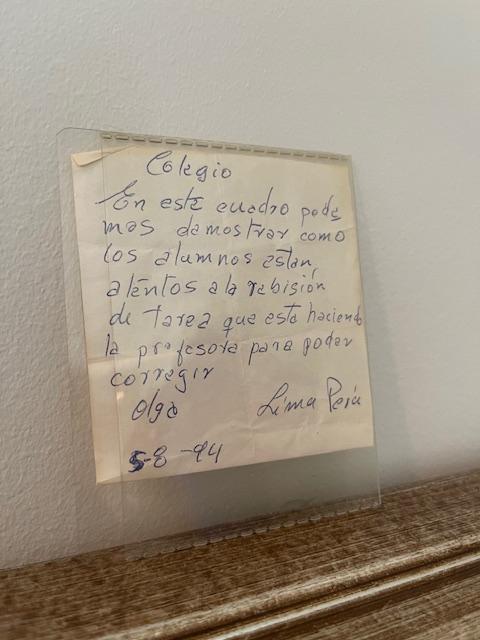 Colegio
En este cuadro pode
mos demostrar como
los alumnos estan,
atentos a la rebisión
de tarea que esta haciendo
la profesora para poder
corregir
Olga Lima Perú
5-8-94